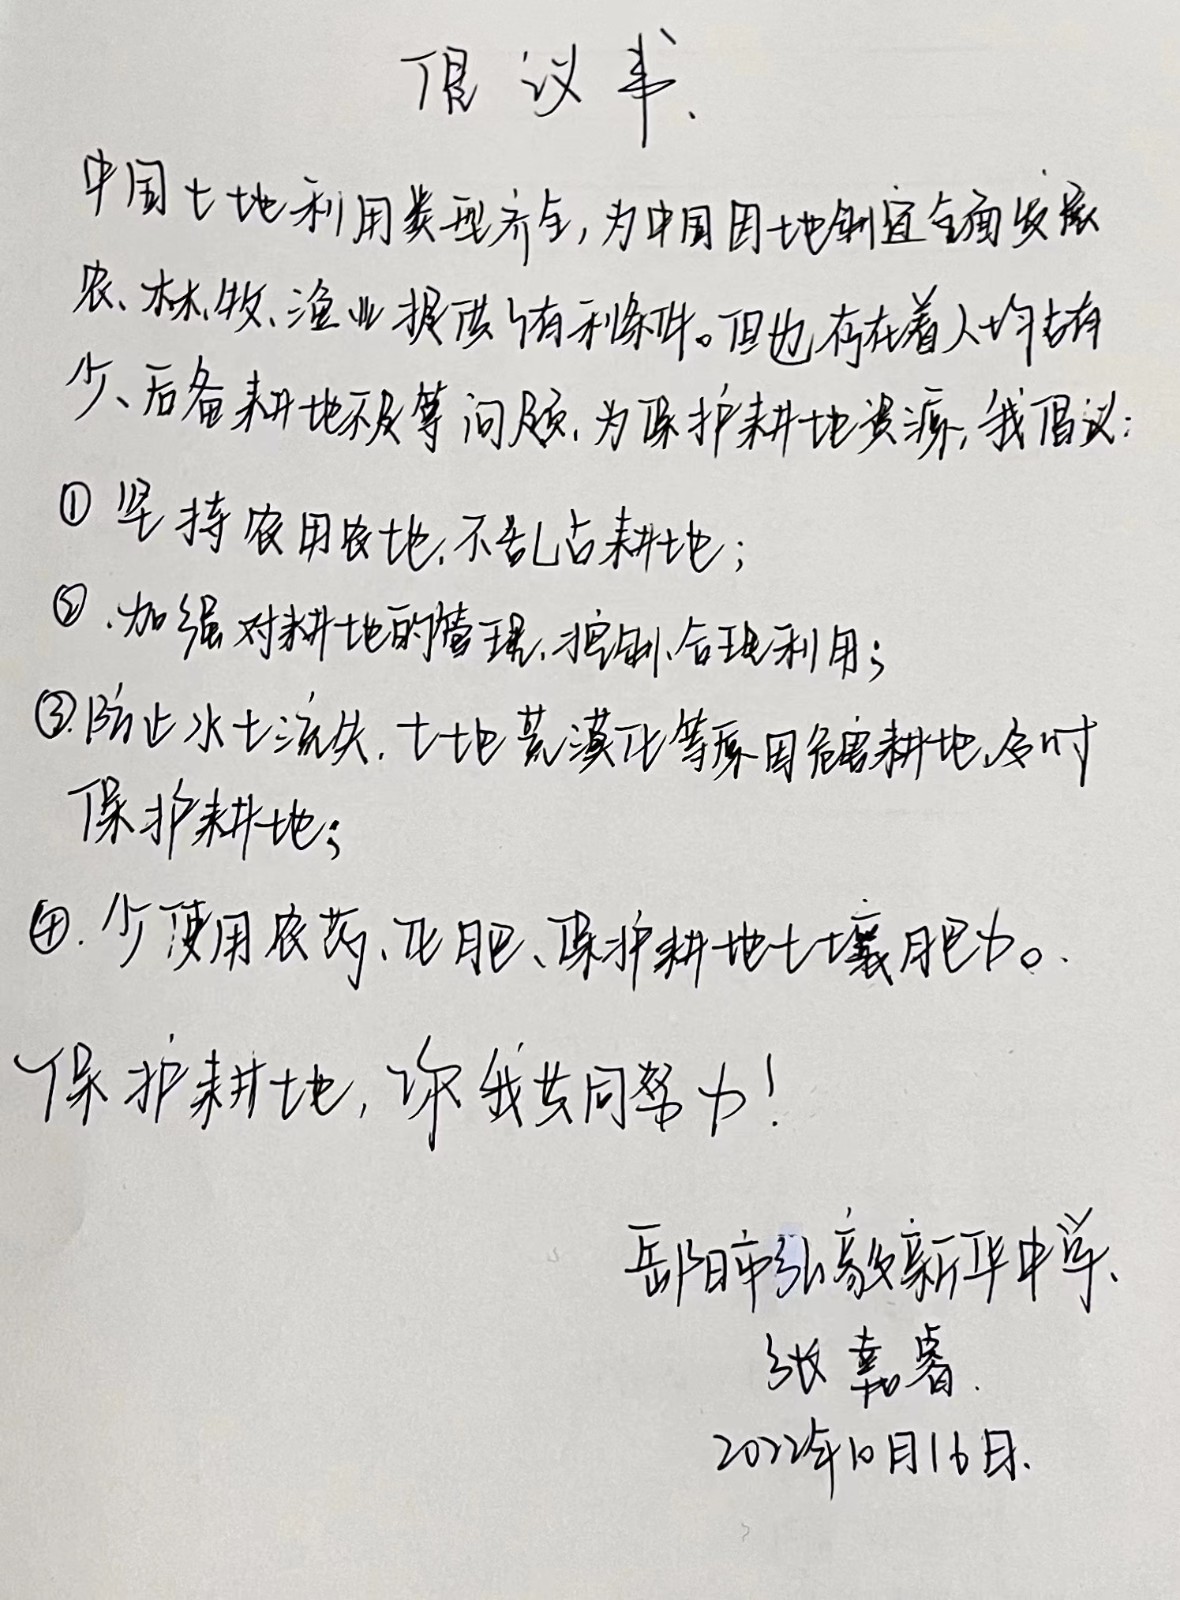 倡议书
中国土地利用类型齐全,为中国因地制宜全面发展
农、林、牧、渔业提供了有利条件。但也存在着人均占有
少、后备耕地不足等问题,为保护耕地资源,我倡议:
①坚持农用农地,不乱占耕地;
②.加强对耕地的管理、控制、合理利用;
③.防止水土流失、土地荒漠化等原因危害耕地,及时
保护耕地;
④.少使用农药、化肥、保护耕地土壤肥力。
保护耕地,你我共同努力!
岳阳市弘毅新华中学.
张嘉睿.
2022年10月16日.